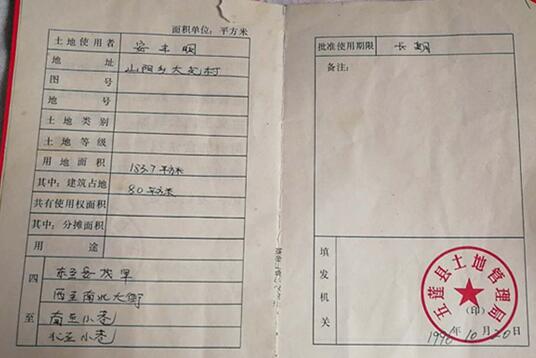 面积单位：平方米
土地使用者 安丰明
地 址 山阳乡大㐂村
图 号
地 号
土地类别
土地等级
用地面积 183.7平方米
其中：建筑占地 80平方米
共有使用权面积
其中：分摊面积
用 途
四至
东至安茂军
西至南北大街
南至小巷
北至小巷
批准使用期限 长期
备注：
填发机关
五莲县土地管理局
（印）
1990年10月20日